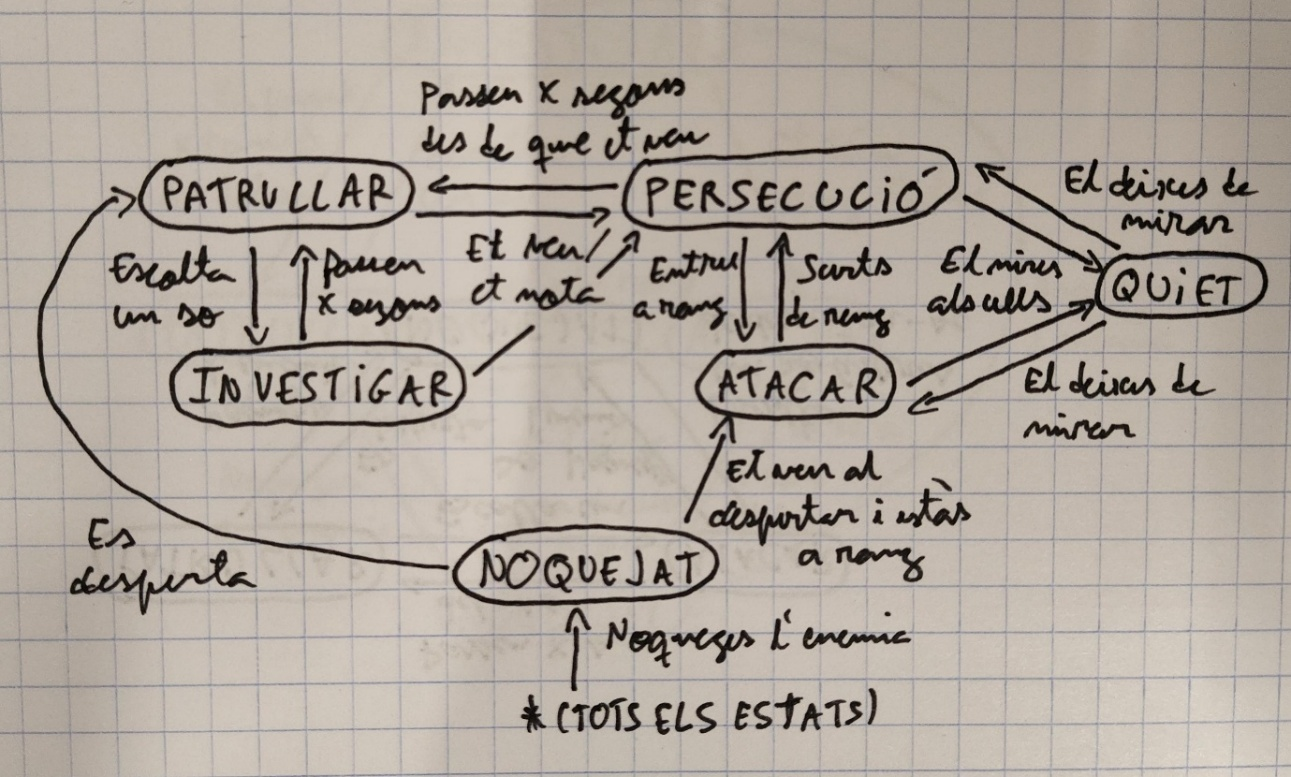 Passen X segons
des de que et veu
PATRULLAR
PERSECUCIÓ
El deixes de
mirar
Escolta
un so
Passen
X segons
Et veu/
et nota
Entres
a rang
Surts
de rang
El mires
als ulls
QUIET
INVESTIGAR
ATACAR
El deixes de
mirar
Et veu al
despertar i estàs
a rang
Es
desperta
NOQUEJAT
Noqueges l'enemic
* (TOTS ELS ESTATS)